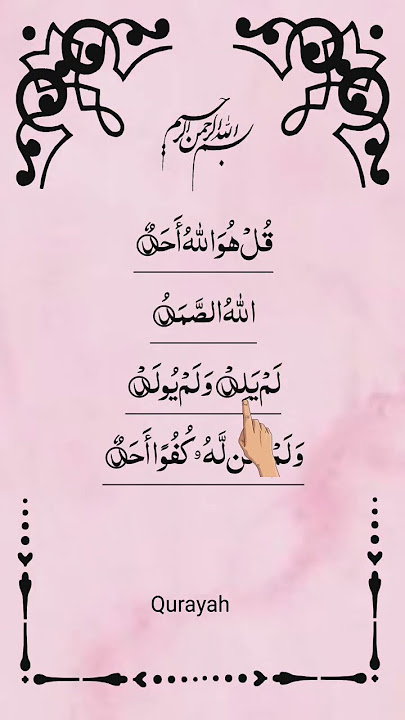 بسم الله الرحمن الرحيم
قُلْ هُوَ اللهُ أَحَدٌ
اللهُ الصَّمَدُ
لَمْ يَلِدْ وَلَمْ يُولَدْ
وَلَمْ لَّهُۥ كُفُوًا أَحَدٌ
Qurayah